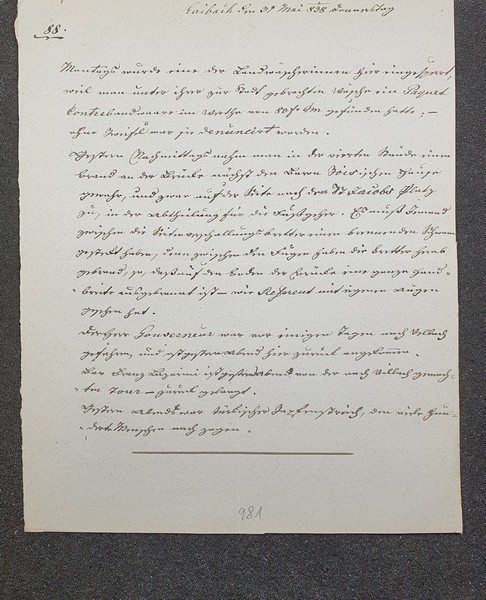 Laibach den 31 Mai 838 Donnerstag
88.
Montags wurde eine der Landwäscherinnen hier eingesperrt,
weil man unter ihrer zur Stadt gebrachten Wäsche ein Paquet
Contrebandwaare im Werthe von 80 f Cm gefunden hatte; –
ohne Zweifel war sie denuncirt worden.
Gestern Nachmittags nahm man in der vierten Stunde einen
Brand an der Brücke nächst den Baron Zois'schen Hause
gewahr, und zwar auf der Seite nach dem St Jacobs Platz
zu, in der Abtheilung für die Fußgeher. Es muß Jemand
zwischen die Seitenverschallungsbretter einen brennenden Schwamm
gesteckt haben, denn zwischen den Fugen haben die Bretter
gebrannt, so, daß auf den Boden der Brücke eine ganze Hand-
breite ausgebrannt ist – wie Referent mit eigenen Augen
gesehen hat.
Der Herr Gouverneur war vor einigen Tagen nach Villach
gefahren, und ist gestern Abend hier zurück angekommen.
Franz ist gestern Abend von der nach Villach gemach-
ten Tour – zurück gelangt.
Gestern Abends war türkischer Zapfenstreich, dem viele Hun-
derte Menschen nach zogen.
981